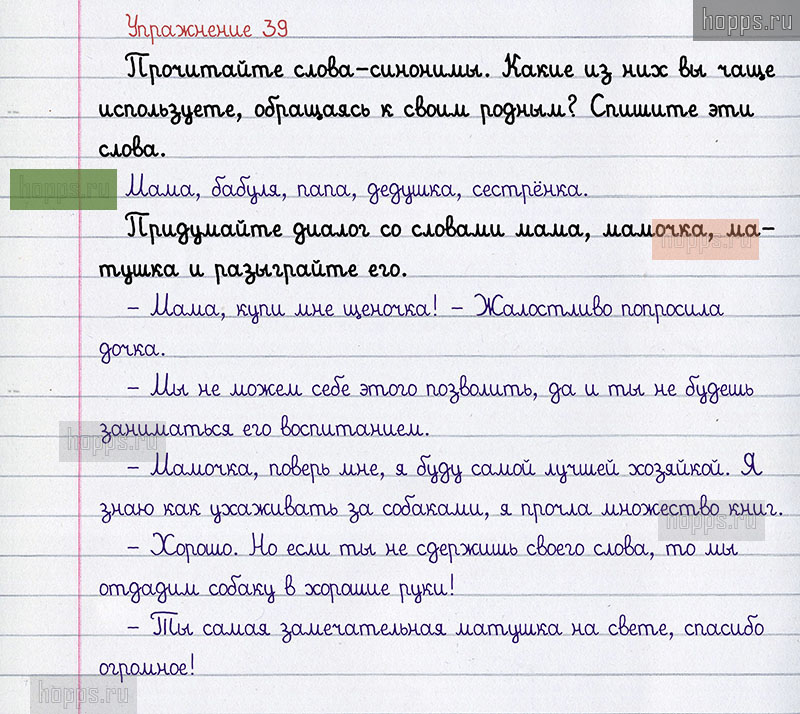 hopps.ru
Упражнение 39
Прочитайте слова-синонимы. Какие из них вы чаще
используете, обращаясь к своим родным? Спишите эти
слова.
hopps.ru
Мама, бабуля, папа, дедушка, сестрёнка.
Придумайте диалог со словами мама, мамочка, ма-
hopps.ru
тушка и разыграйте его.
– Мама, купи мне щеночка! – Жалостливо попросила
дочка.
– Мы не можем себе этого позволить, да и ты не будешь
заниматься его воспитанием.
hopps.ru
– Мамочка, поверь мне, я буду самой лучшей хозяйкой. Я
знаю как ухаживать за собаками, я прочла множество книг.
hopps.ru
– Хорошо. Но если ты не сдержишь своего слова, то мы
отдадим собаку в хорошие руки!
– Ты самая замечательная матушка на свете, спасибо
огромное!
hopps.ru